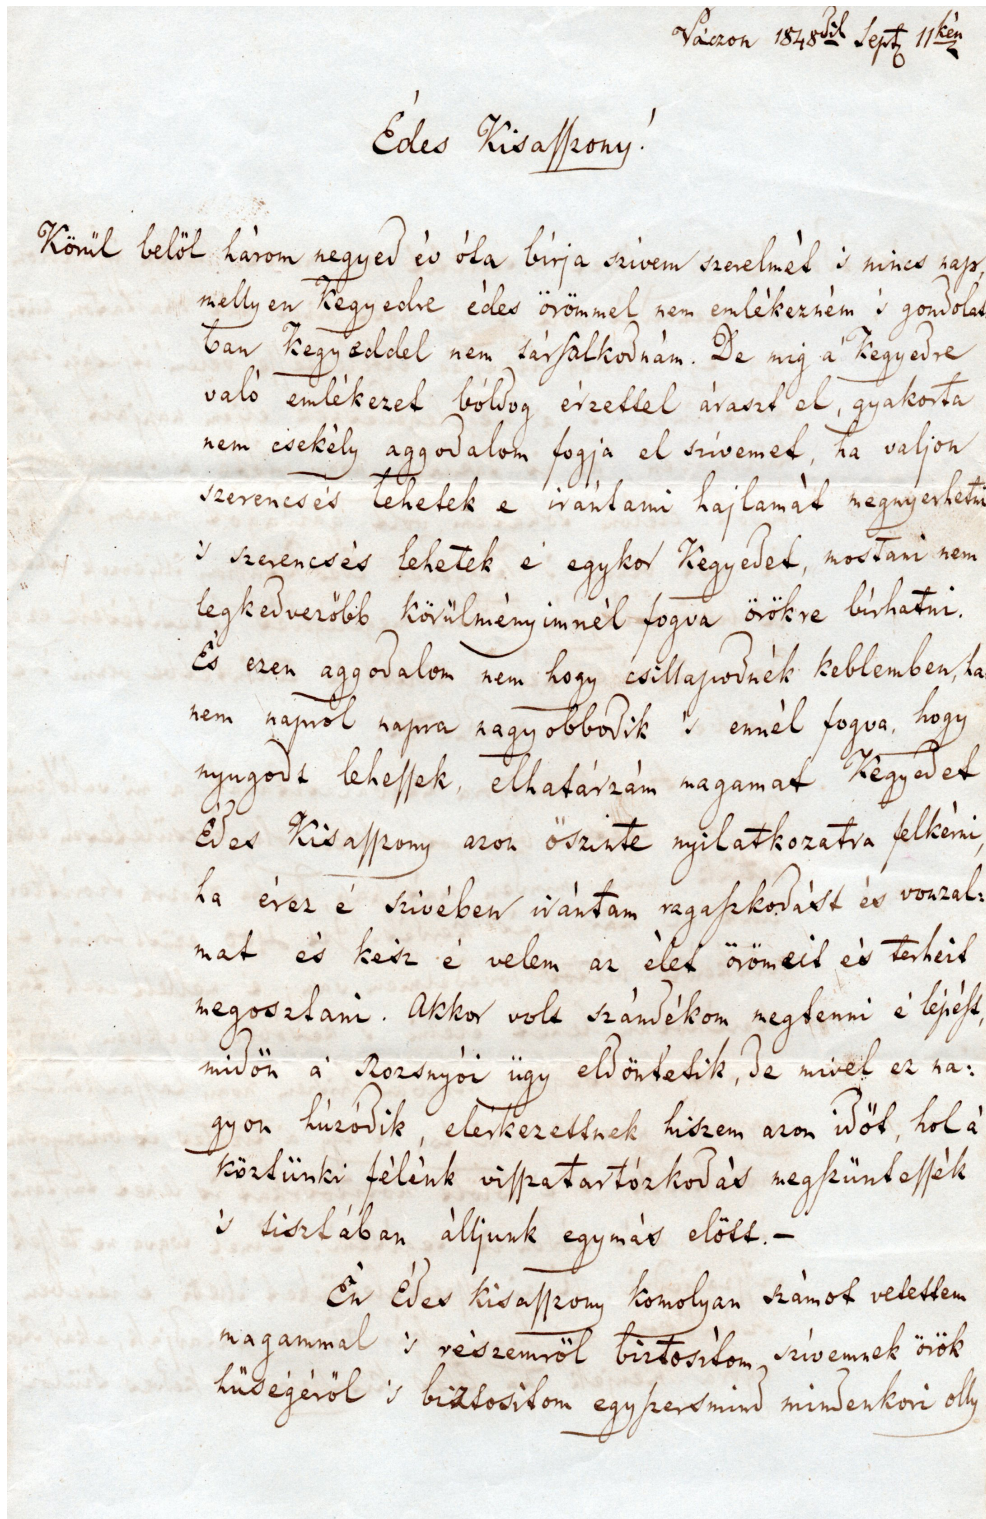 Váczon 1848dik Sept 11kén
Édes Kisasszony!
Körül belöl három negyed év óta bírja szívem szerelmét 's nincs nap,
mellyen Kegyedre édes örömmel nem emlékezném 's gondolat
ban Kegyeddel nem társalkodnám. De mig á Kegyedre
való emlékezet bóldog érzettel áraszt el, gyakorta
nem csekély aggodalom fogja el szívemet, ha valjon
szerencsés lehetek e irántami hajlamát megnyerhetni
's szerencsés lehetek é egykor Kegyedet, mostani nem
legkedvezöbb körülményimnél fogva örökre bírhatni.
És ezen aggodalom nem hogy csillapodnék keblemben, ha
nem napról napra nagyobbodik 's ennél fogva, hogy
nyugodt lehessek, elhatárzám magamat Kegyedet
Édes Kisasszony azon öszinte nyilatkozatra felkérni,
ha érez é szivében irántam ragaszkodást és vonzal:
mat és kész é velem az élet örömeit és terheit
megosztani. Akkor volt szándékom megtenni é lépést,
midön á Rozsnyói ügy eldöntetik, de mivel ez na:
gyon húzódik, elérkezettnek hiszem azon idöt, hol á
köztünki félénk visszatartózkodás megszüntessék
's tisztában álljunk egymás elött.—
Én Édes kisasszony komolyan számot vetettem
magammal 's részemröl biztosítom szívemnek örök
hüségéröl 's biztosítom egyszersmind mindenkori olly